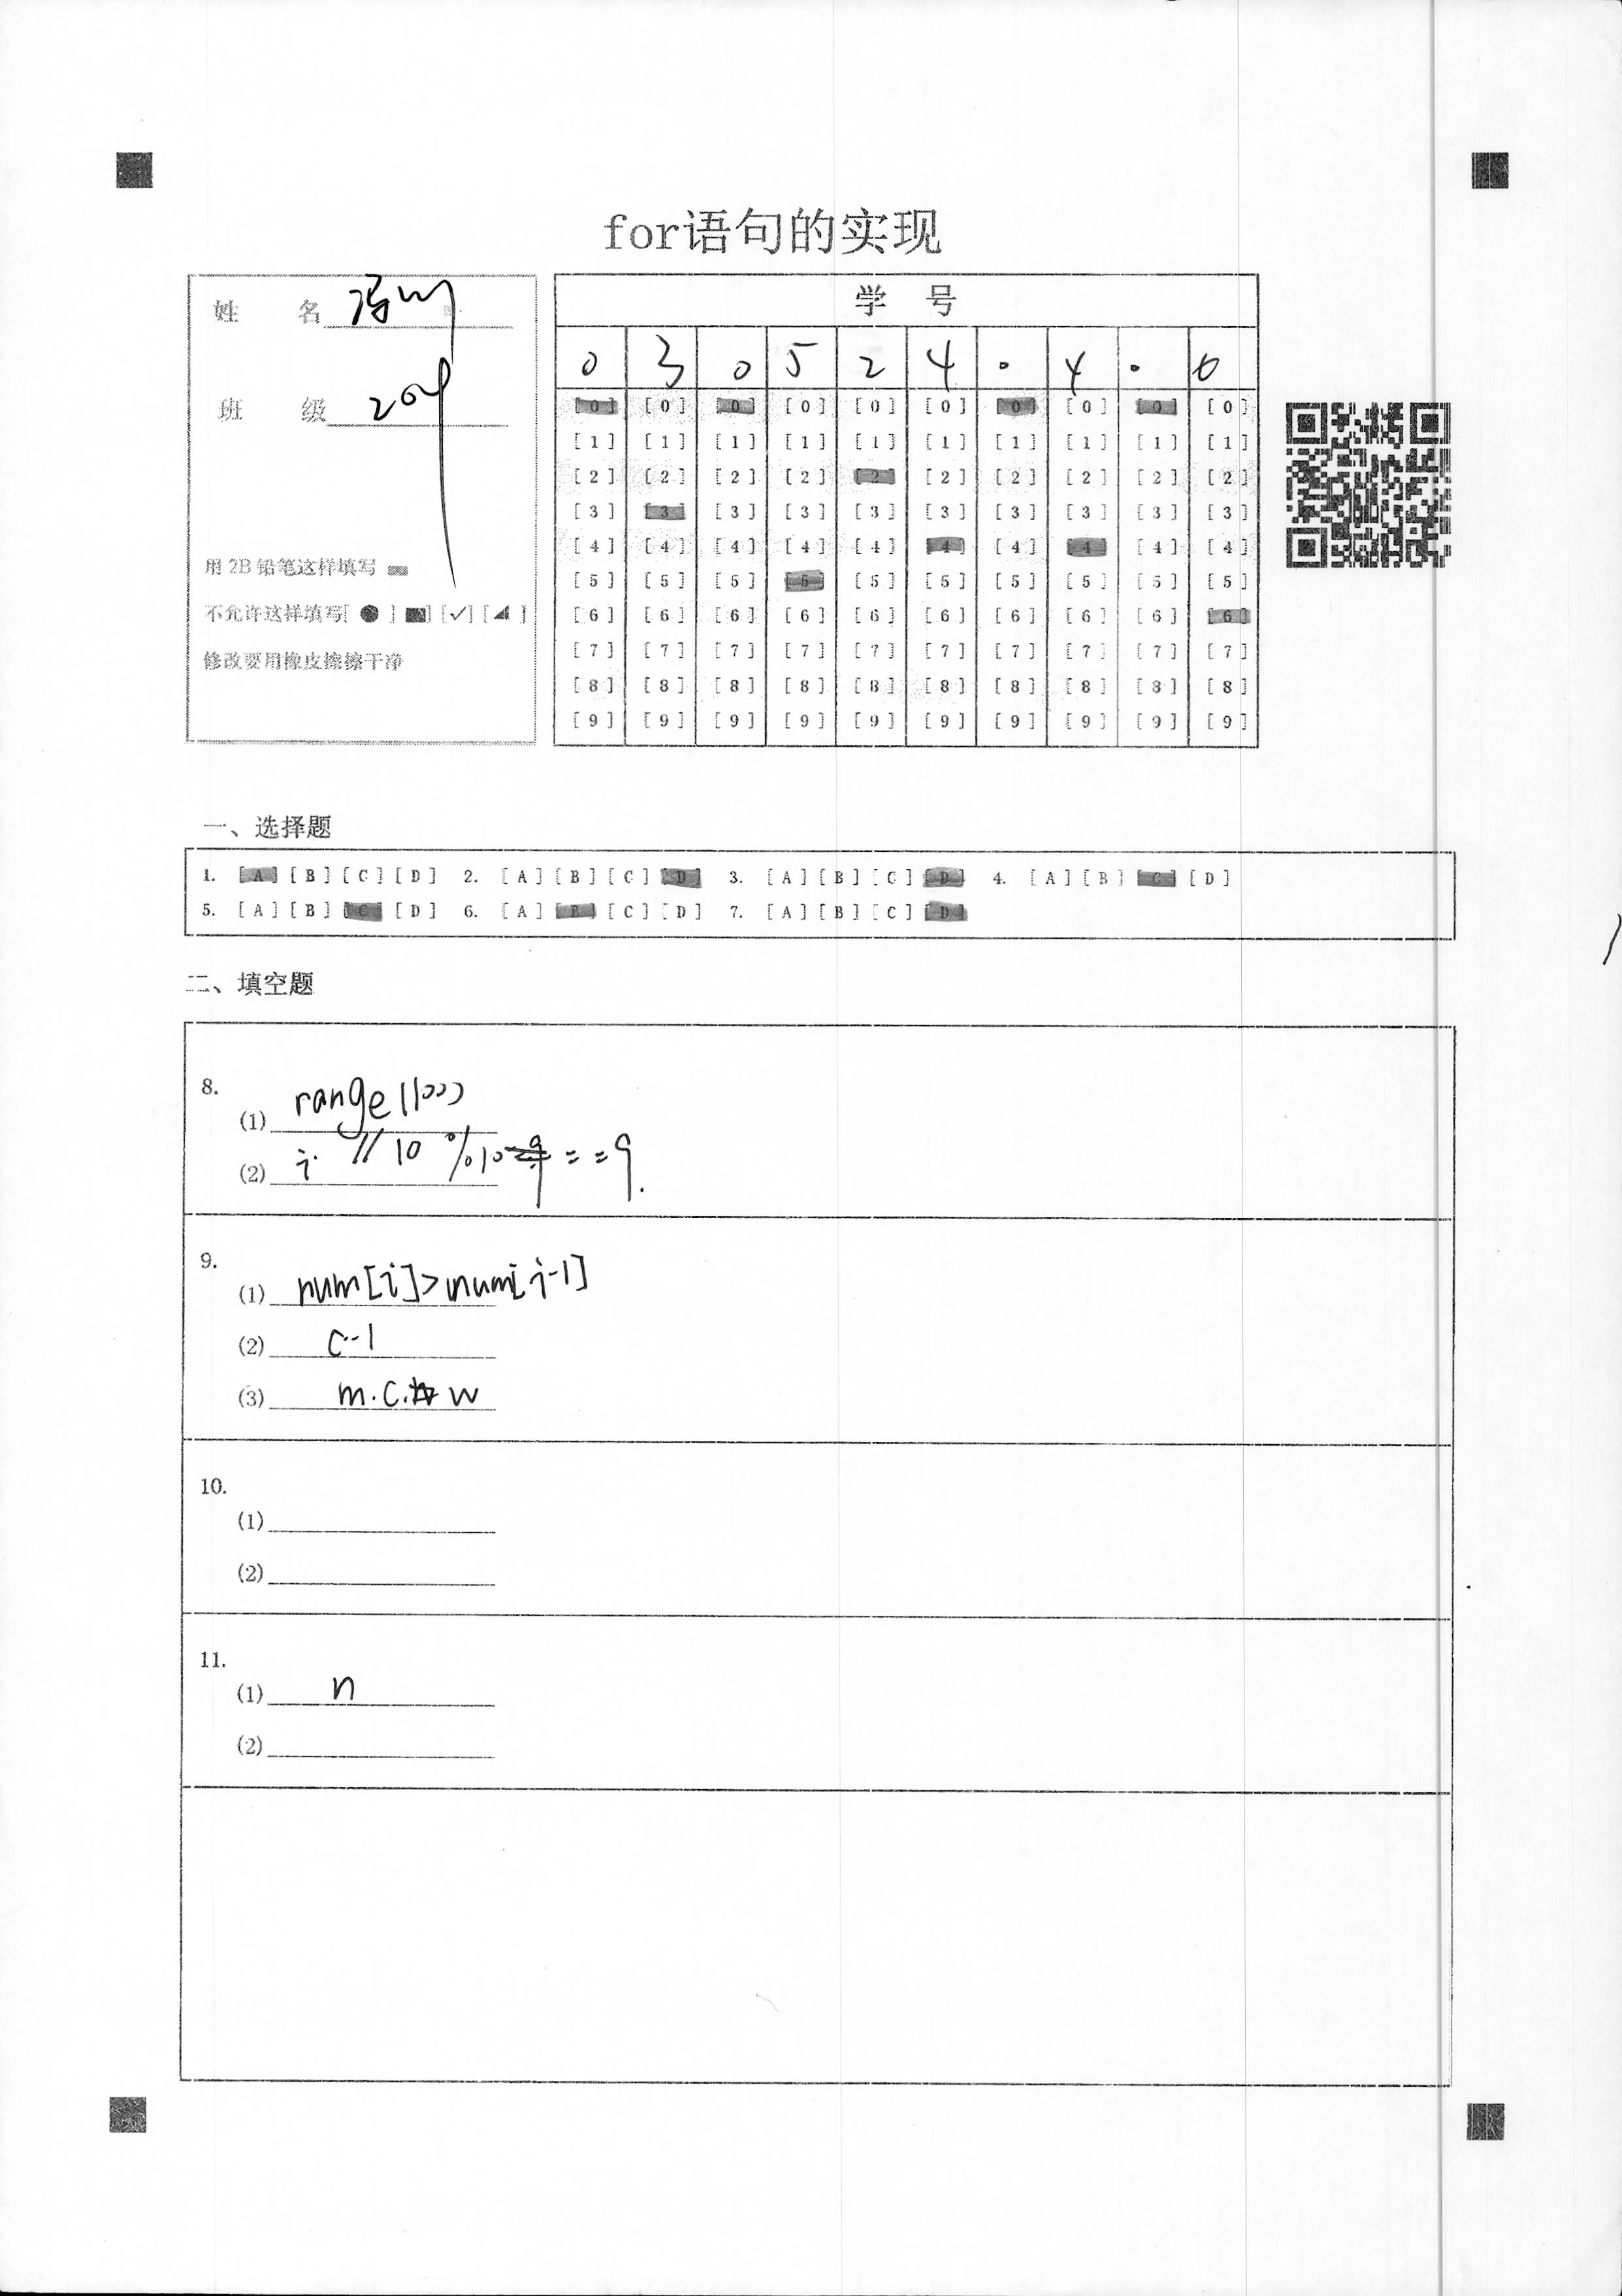 for语句的实现
姓 名
班 级 204
用2B铅笔这样填写
不允许这样填写[ ● ] ■] [✓] [◢ ]
修改要用橡皮擦擦干净
学 号
0 3 0 5 2 4 0 4 0 6
[0] [0] [0] [0] [0] [0] [0] [0] [0] [0]
[1] [1] [1] [1] [1] [1] [1] [1] [1] [1]
[2] [2] [2] [2] [2] [2] [2] [2] [2] [2]
[3] [3] [3] [3] [3] [3] [3] [3] [3] [3]
[4] [4] [4] [4] [4] [4] [4] [4] [4] [4]
[5] [5] [5] [5] [5] [5] [5] [5] [5] [5]
[6] [6] [6] [6] [6] [6] [6] [6] [6] [6]
[7] [7] [7] [7] [7] [7] [7] [7] [7] [7]
[8] [8] [8] [8] [8] [8] [8] [8] [8] [8]
[9] [9] [9] [9] [9] [9] [9] [9] [9] [9]
一、选择题
1. [A] [B] [C] [D] 2. [A] [B] [C] [D] 3. [A] [B] [C] [D] 4. [A] [B] [C] [D]
5. [A] [B] [C] [D] 6. [A] [B] [C] [D] 7. [A] [B] [C] [D]
二、填空题
8.
(1) range(100)
(2) i //10 %10 ==9.
9.
(1) num[i]>num[i-1]
(2) c-1
(3) m.c. w
10.
(1)
(2)
11.
(1) n
(2)